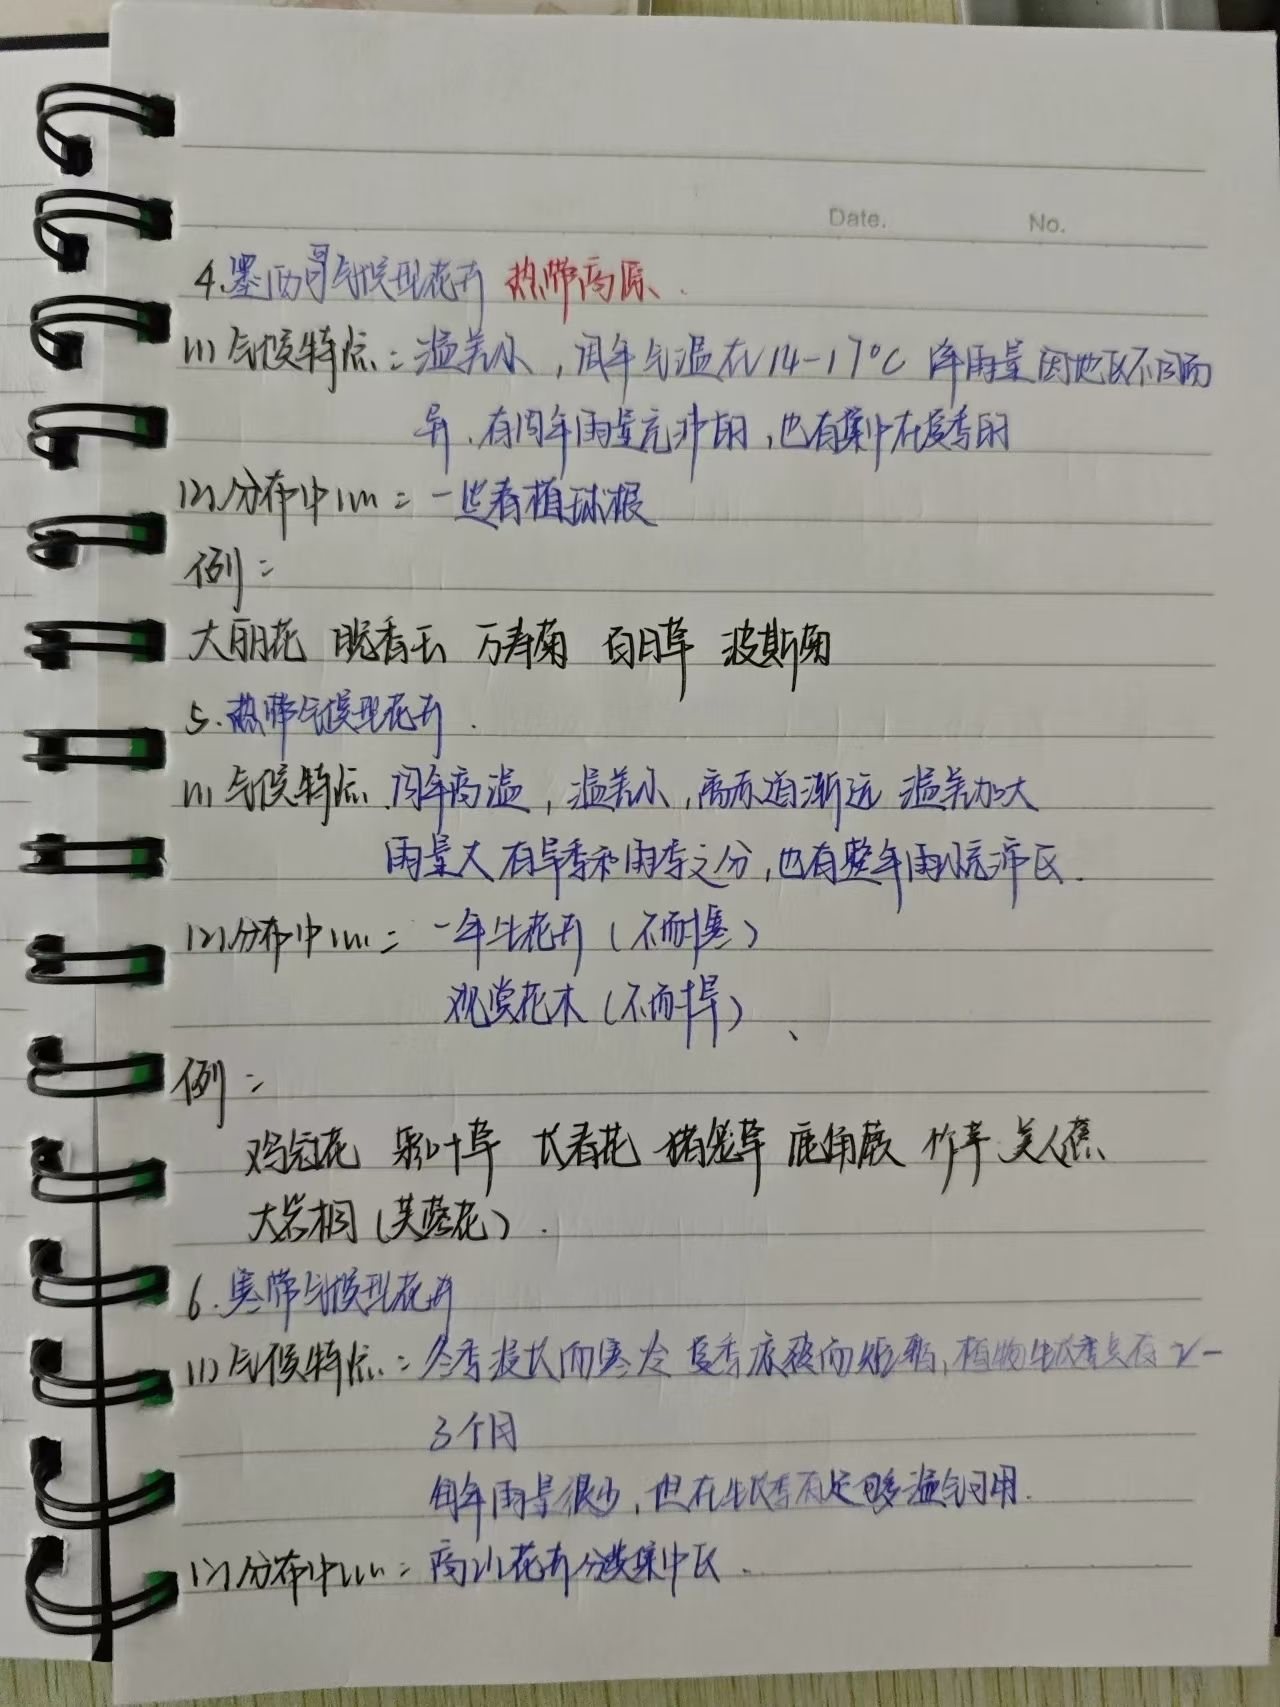 Date. No.
4.墨西哥气候型花卉 热带高原.
(1)气候特点:温差小,周年气温在14-17°C 降雨量因地区不同而
异.有周年雨量充沛的,也有集中在夏季的
(2)分布中心:一些春植球根
例:
大丽花 晚香玉 万寿菊 百日草 波斯菊
5.热带气候型花卉.
(1)气候特点.周年高温,温差小,离赤道渐远 温差加大
雨量大 有旱季和雨季之分,也有整年雨水充沛区.
(2)分布中心:一年生花卉(不耐寒)
观赏花木(不耐旱)、
例:
鸡冠花 彩叶草 长春花 猪笼草 鹿角蕨 竹芋 美人蕉
大岩桐(芙蓉花).
6.寒带气候型花卉
(1)气候特点:冬季漫长而寒冷 夏季凉爽而短暂,植物生长季只有2-
3个月
每年雨量很少,但在生长季有足够湿气可用.
(2)分布中心:高山花卉分类集中区.